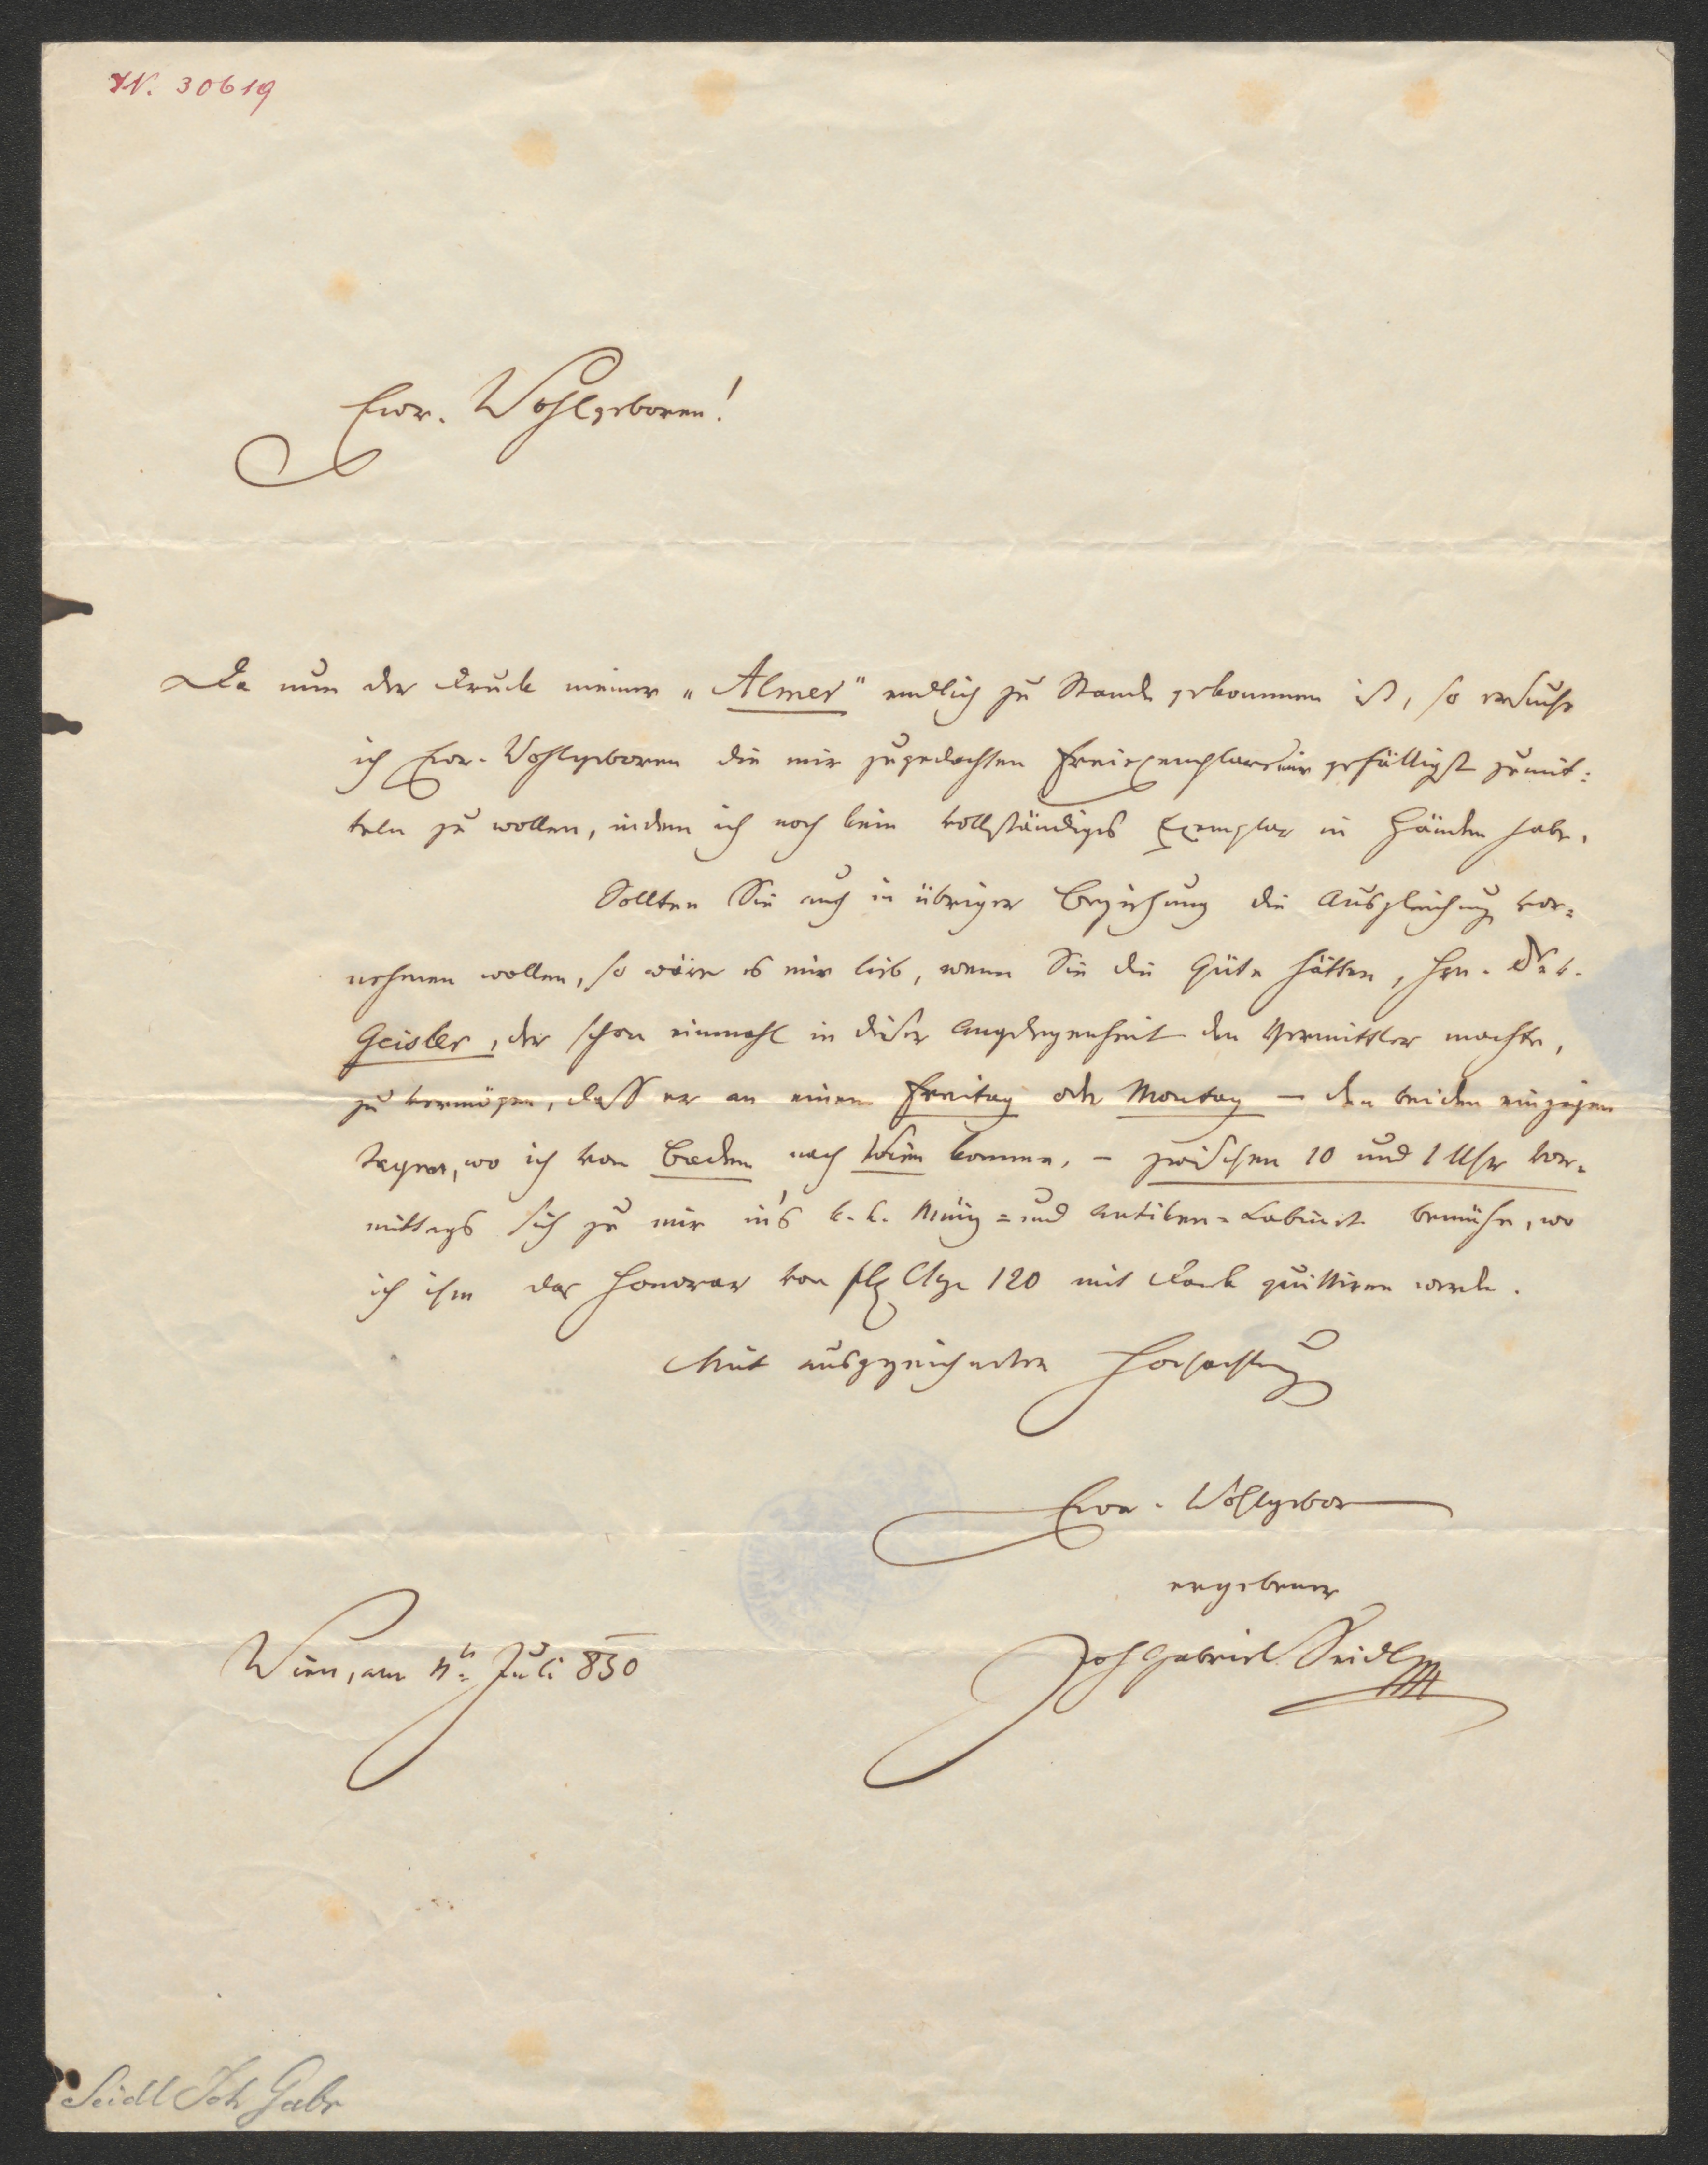 IN. 30619
Euer. Wohlgeboren!
Da nun der Druck meiner „Almer" endlich zu Stande gekommen ist, so ersuche
ich Euer. Wohlgeboren die mir zugedachten Freiexemplare mir gefälligst zumit-
teln zu wollen, indem ich noch kein vollständiges Exemplar in Händen habe.
Sollten Sie auch in übriger Beziehung die Ausgleichung vor-
nehmen wollen, so wäre es mir lieb, wenn Sie die Güte hätten, Hrn.
Geisler, der schon einmahl in dieser Angelegenheit den Vermittler machte,
zu vermögen, daß er an einem Freitag oder Montag – den beiden einzigen
Tagen, wo ich von Baden nach Wien komme, – zwischen 10 und 1 Uhr Vor-
mittags sich zu mir in's k. k. Münz- und Antiken-Cabinet bemühe, wo
ich ihm das Honorar von 120 mit Dank quittiren werde.
Mit ausgezeichneter Hochachtung
Euer. Wohlgebor
ergebener
Joh Gabriel Seidl
Wien, am Juli 850
Seidl Joh Gabr